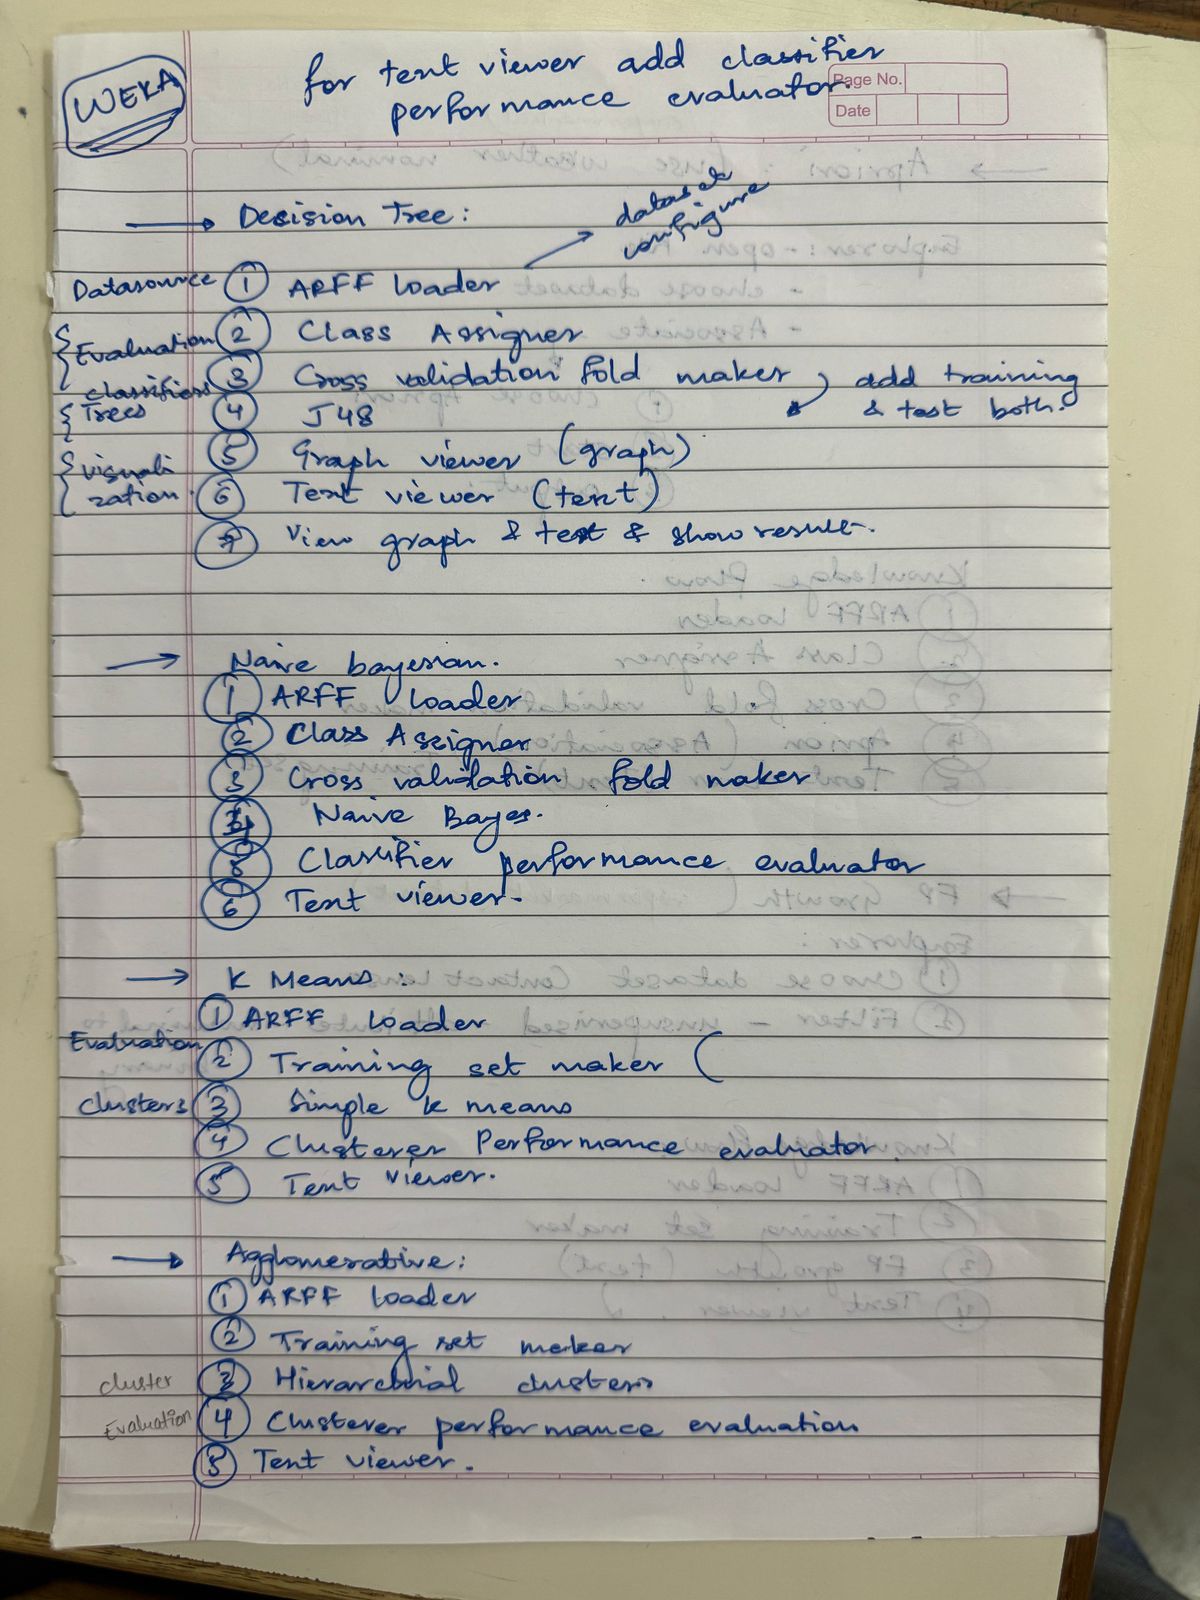 WEKA
for text viewer add classifier
performance evaluator.
Page No.
Date
→ Decision Tree:
dataset
configure
Datasource ① ARFF loader
{ Evaluation ② Class Assigner
③ Cross validation fold maker
add training
& test both.
classifiers
{ Trees ④ J48
⑤ Graph viewer (graph)
{ visuali
zation ⑥ Text viewer (text)
⑦ View graph & text & show result.
→ Naive bayesian.
① ARFF loader
② Class Assigner
③ Cross validation fold maker
④ Naive Bayes.
⑤ Classifier performance evaluator
⑥ Text viewer.
→ K Means:
① ARFF loader
Evaluation ② Training set maker (
clusters ③ Simple k means
④ Clusterer Performance evaluator.
⑤ Text viewer.
→ Agglomerative:
① ARFF loader
② Training set maker
cluster ③ Hierarchial clusters
Evaluation ④ Clusterer performance evaluation
⑤ Text viewer.